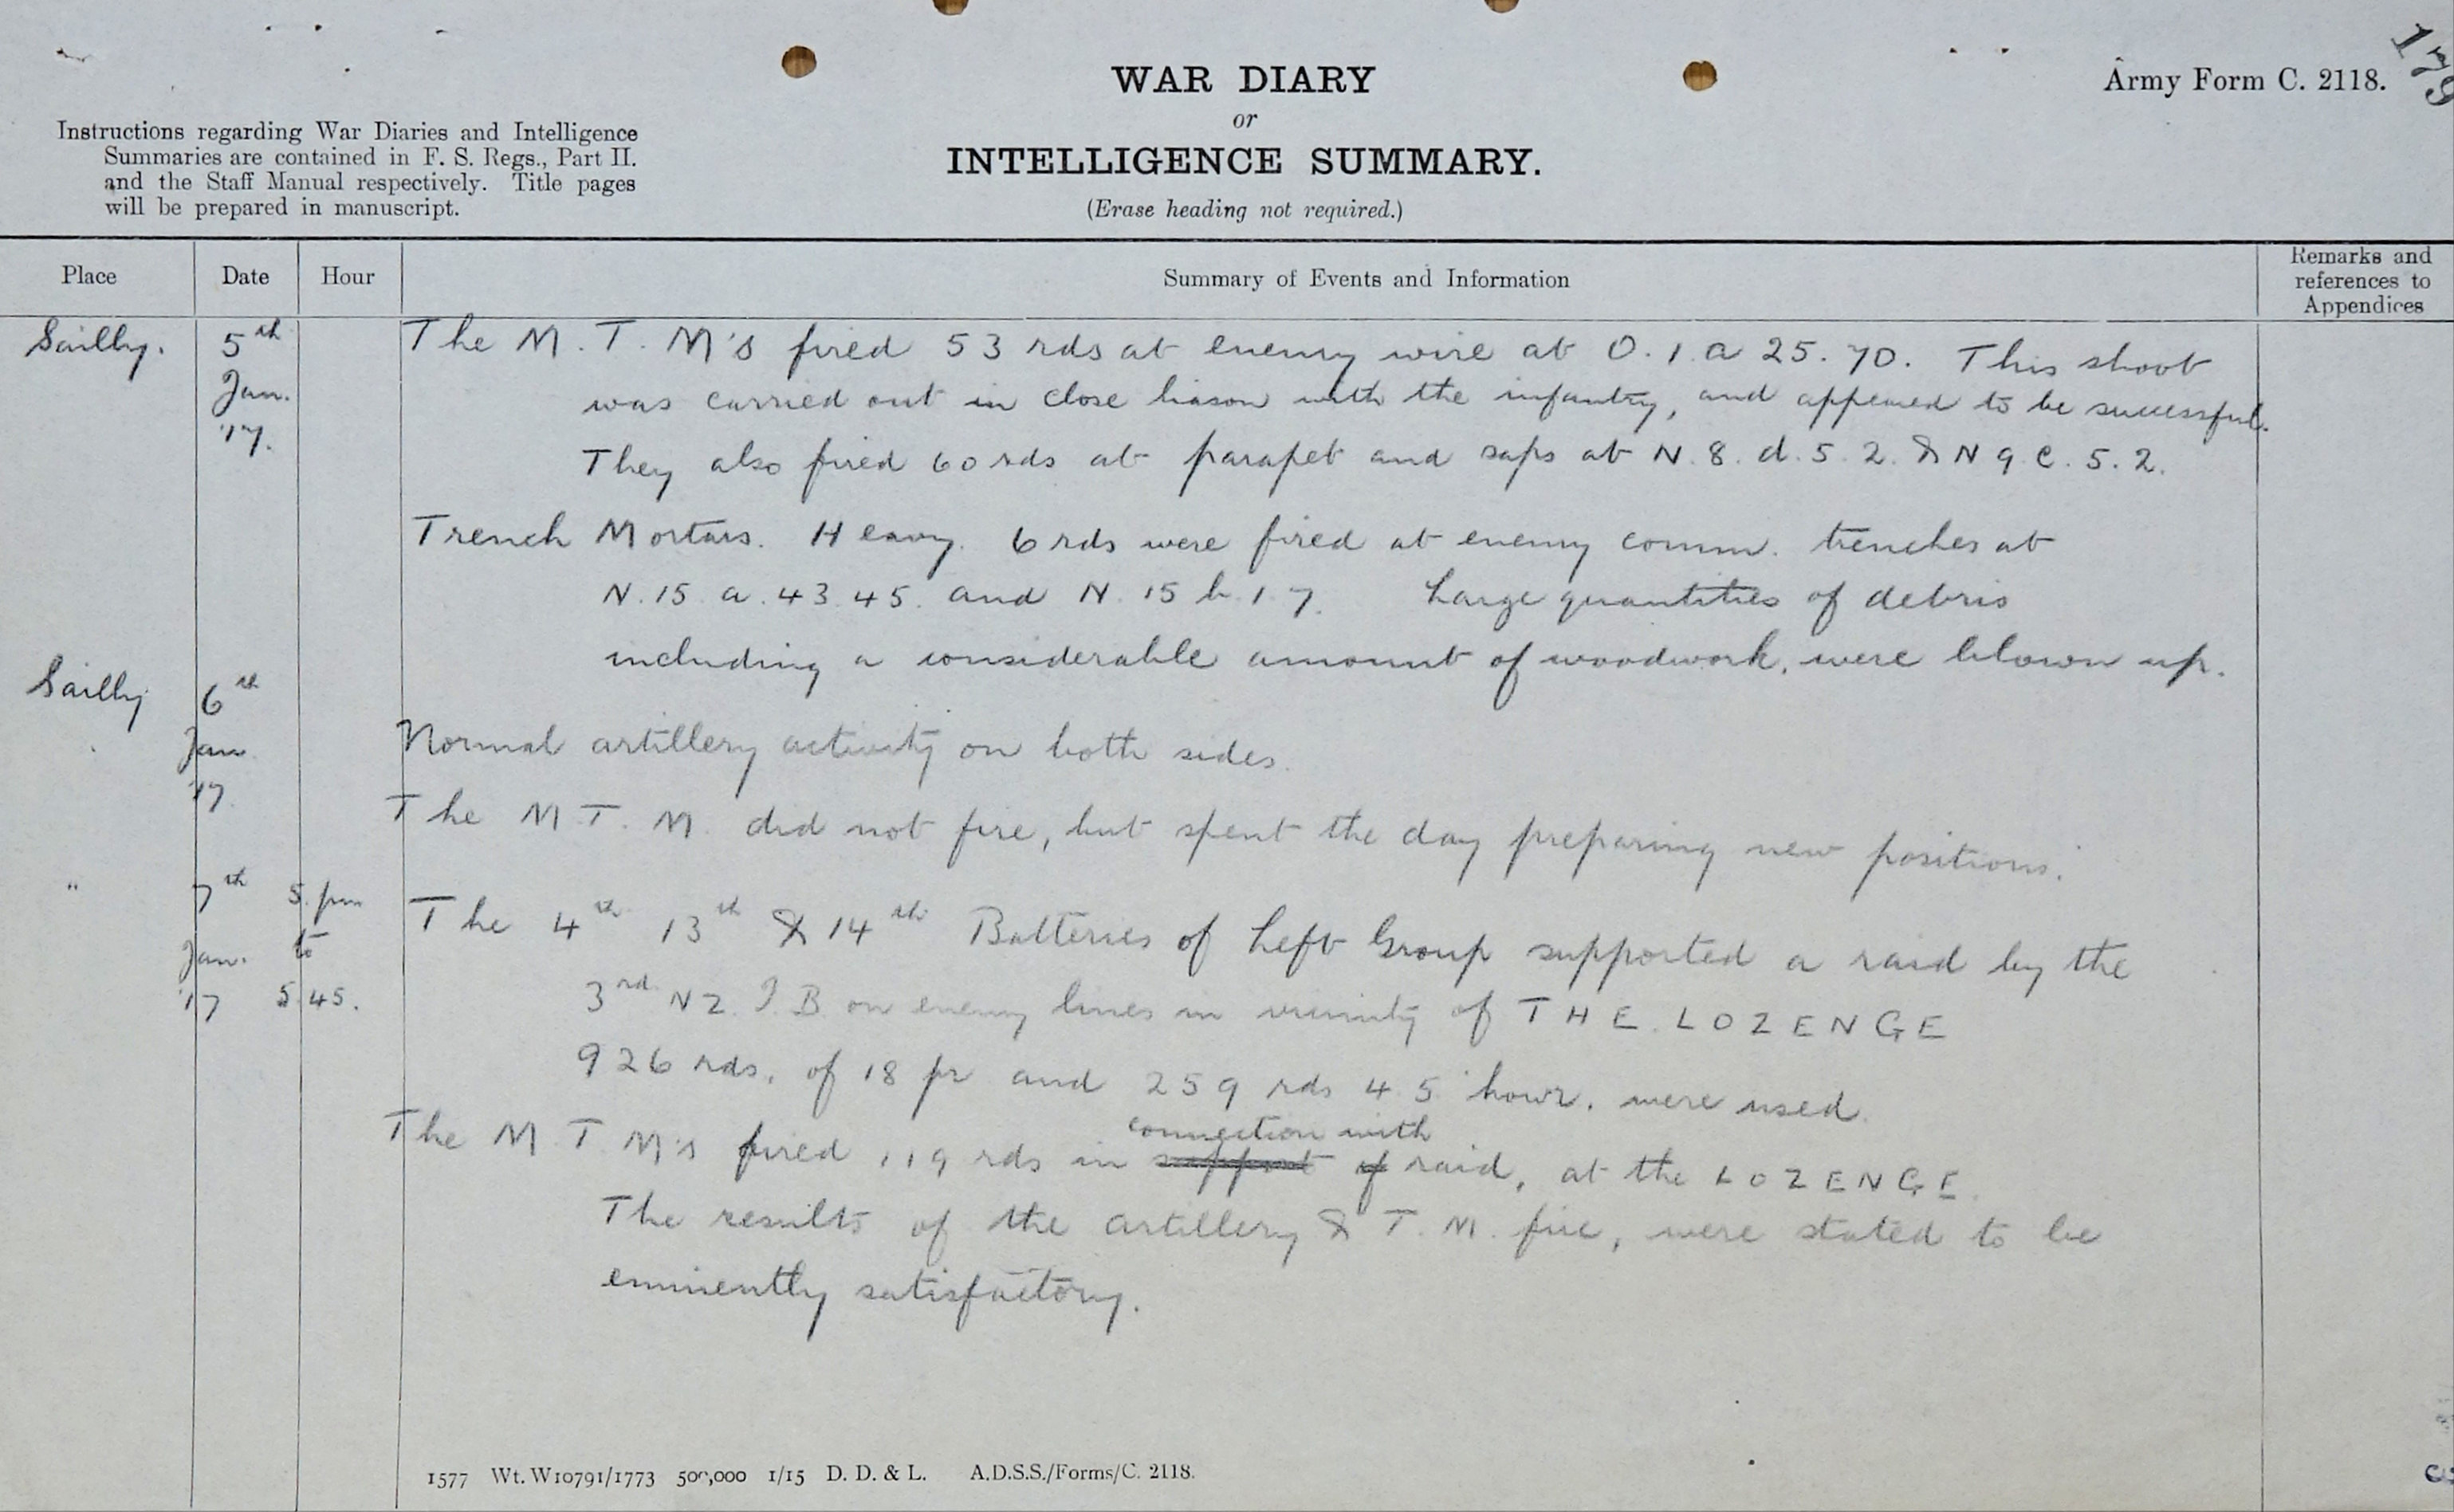 WAR DIARY
or
INTELLIGENCE SUMMARY.
(Erase heading not required.)
Army Form C. 2118.
179
Instructions regarding War Diaries and Intelligence
Summaries are contained in F. S. Regs., Part II.
and the Staff Manual respectively. Title pages
will be prepared in manuscript.
Place Date Hour Summary of Events and Information Remarks and references to Appendices
Sailly. 5th Jan. '17. The M. T. M's fired 53 rds at enemy wire at O. 1. a 25. 70. This shoot
was carried out in close liason with the infantry, and appeared to be successful.
They also fired 60 rds at parapet and saps at N. 8. d. 5. 2. & N 9. c. 5. 2.
Trench Mortars. Heavy. 6 rds were fired at enemy comm. trenches at
N. 15. a. 43. 45. and N. 15 b. 1. 7. Large quantities of debris
including a considerable amount of woodwork, were blown up.
Sailly 6th Jan '17. Normal artillery activity on both sides.
The M. T. M. did not fire, but spent the day preparing new positions.
" 7th Jan. '17 5. pm to 5.45. The 4th 13th & 14th Batteries of Left Group supported a raid by the
3rd NZ. I. B. on enemy lines in vicinity of THE LOZENGE
926 rds. of 18 pr and 259 rds 4.5" howr. were used.
connection with
The M. T. M's fired 119 rds in support of raid, at the LOZENGE.
The results of the artillery & T. M. fire, were stated to be
eminently satisfactory.
1577 Wt. W10791/1773 500,000 1/15 D. D. & L. A.D.S.S./Forms/C. 2118.